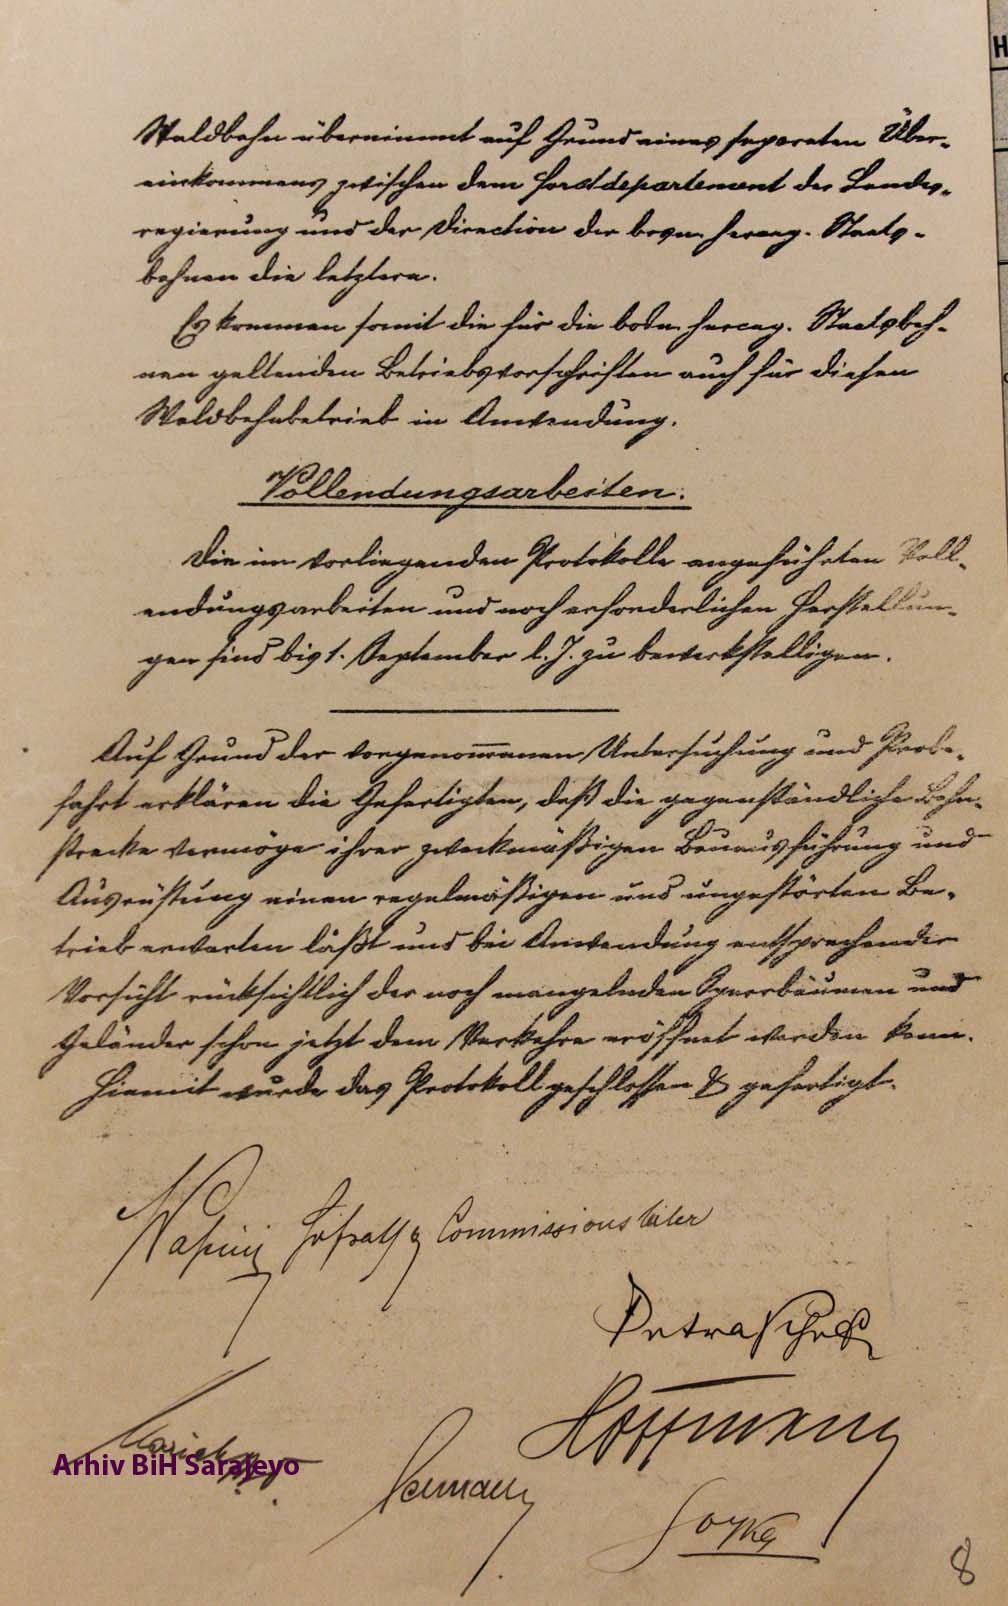 H
Waldbahn übernimmt auf Grund eines separaten Über-
einkommens zwischen dem Forstdepartement der Landes-
regierung und der Direction der bosn. herceg. Staats-
bahnen die letztere.
Es kommen somit die für die bosn. herceg. Staatsbah-
nen geltenden Betriebsvorschriften auch für diesen
Waldbahnbetrieb in Anwendung.
Vollendungsarbeiten.
Die im vorliegenden Protokolle angeführten Voll-
endungsarbeiten und noch erforderlichen Herstellun-
gen sind bis 1. September l. J. zu bewerkstelligen.
Auf Grund der vorgenom̅enen Untersuchung und Probe-
fahrt erklären die Gefertigten, daß die gegenständliche Bahn-
strecke vermöge ihrer zweckmäßigen Bauausführung und
Ausrüstung einen regelmäßigen und ungestörten Be-
trieb erwarten läßt und bei Anwendung entsprechender
Vorsicht rücksichtlich der noch mangelnden Sperrbäumen und
Geländer schon jetzt dem Verkehre eröffnet werden kann.
Hiemit wurde das Protokoll geschlossen & gefertigt.
Commissionsleiter
Petraschek
Hoffmann
Arhiv BiH Sarajevo
8